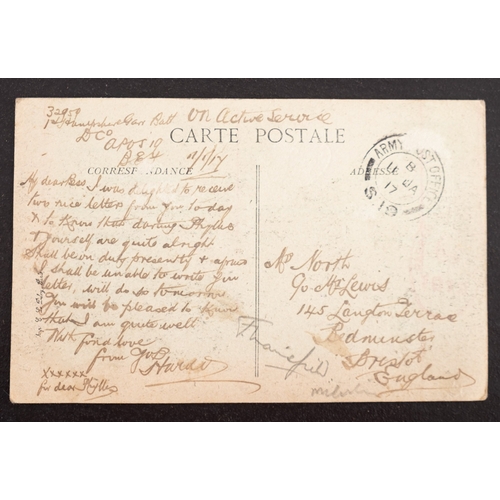 On Active Service
D Co
APO S 19
B.E.F 11/1/17
CARTE POSTALE
CORRESPONDANCE
ADRESSE
ARMY POST OFFICE
S 19
My dear I was delighted to receive
two nice letters from you to-day
& to know that darling Phyllis
& yourself are quite alright
Shall be on duty presently & as
I shall be unable to write you
letter, will do so tomorrow.
You will be pleased to know
that I am quite well.
With fond love
from
xxxxxx
for dear Phyllis
Mrs North
c/o Mrs Lewis
145 Langton Terrace
Bedminster
Bristol
England